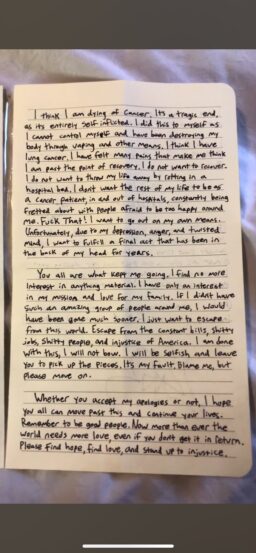 I think I am dying of cancer. Its a tragic end,
as its entirely self inflicted. I did this to myself as
I cannot control myself and have been destroying my
body through vaping and other means. I think I have
lung cancer. I have felt many pains that make me think
I am past the point of recovery. I do not want to recover.
I do not want to throw my life away by rotting in a
hospital bed. I don't want the rest of my life to be as
a cancer patient, in and out of hospitals, constantly being
fretted about with people afraid to be too happy around
me. Fuck That! I want to go out on my own means.
Unfortunately, due to my depression, anger, and twisted
mind, I want to fulfill a final act that has been in
the back of my head for years.
You all are what kept me going. I find no more
interest in anything material. I have only an interest
in my mission and love for my family. If I didn't have
such an amazing group of people around me, I would
have been gone much sooner. I just want to escape
from this world. Escape from the constant bills, shitty
jobs, shitty people, and injustice of America. I am done
with this, I will not bow. I will be selfish and leave
you to pick up the pieces. Its my fault. Blame me, but
please move on.
Whether you accept my apologies or not, I hope
you all can move past this and continue your lives.
Remember to be good people. Now more than ever the
world needs more love, even if you don't get it in return.
Please find hope, find love, and stand up to injustice.